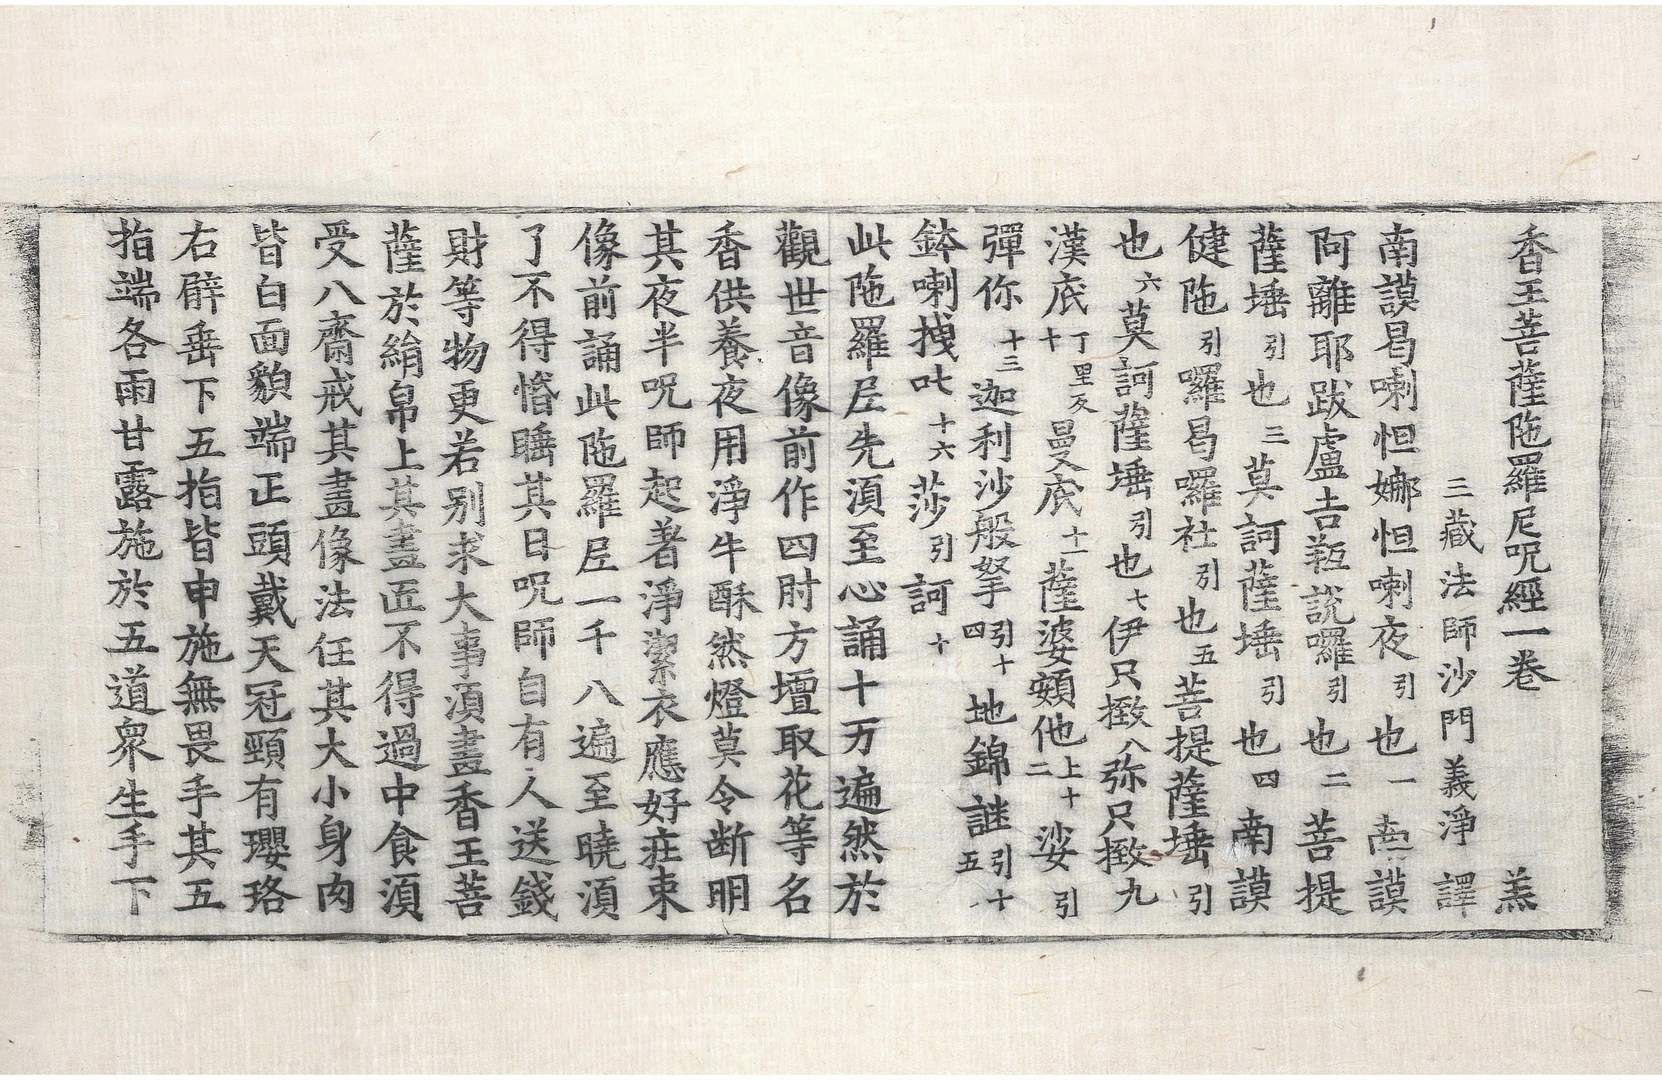 香王菩薩陁羅尼呪經一卷 羔
三藏法師沙門義淨 譯
南謨曷喇怛娜怛喇夜引也一南謨
阿離耶跋盧吉𦀟說囉引也二菩提
薩埵引也三莫訶薩埵引也四南謨
健陁引囉曷囉社引也五菩提薩埵引
也六莫訶薩埵引也七伊只㨖八弥只㨖九
漢底丁里反十曼底十一薩婆頞他上十二娑引
彈你十三迦利沙般拏引十四地錦謎引十五
鉢喇拽吒十六莎引訶十
此陁羅尼先湏至心誦十万遍然於
觀世音像前作四肘方壇取花等名
香供養夜用淨牛酥然燈莫令断明
其夜半呪師起著淨潔衣應好莊束
像前誦此陁羅尼一千八遍至曉湏
了不得惛睡其日呪師自有人送錢
財等物更若别求大事湏畫香王菩
薩於絹帛上其畫匠不得過中食湏
受八齋戒其畫像法任其大小身肉
皆白面貌端正頭戴天冠頸有瓔珞
右臂垂下五指皆申施無畏手其五
指端各雨甘露施於五道衆生手下